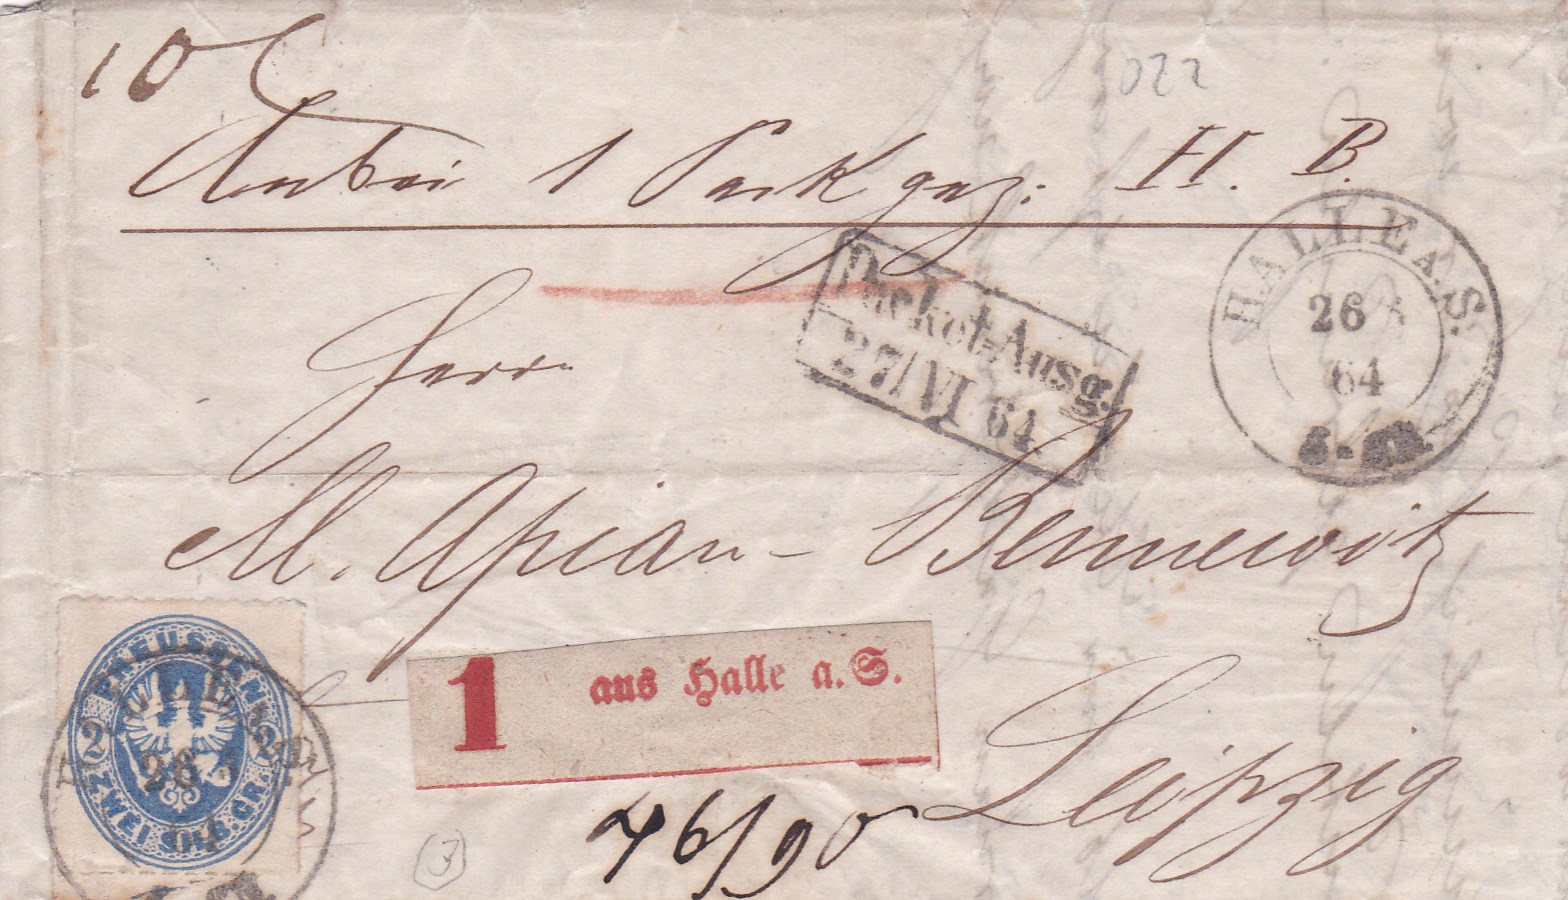 10
022
Anbei 1 Pack gez: H. B.
HALLE A. S.
26 6
64
Packet-Ausg.
27/VI 64
Herrn
M. Apian-Bennewitz
PREUSSEN
2 2
ZWEI SILB.GR.
26
64
1 aus Halle a. S.
Leipzig
76/90
3